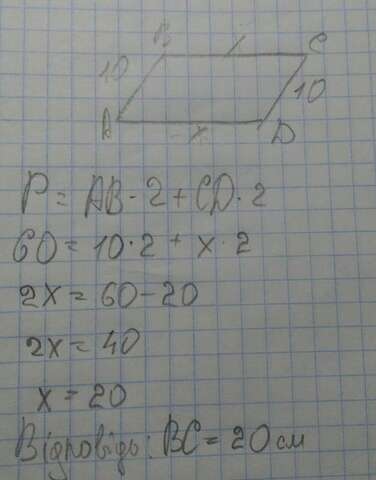 B C
10 10
A x D
P = AB · 2 + CD · 2
60 = 10 · 2 + x · 2
2x = 60 - 20
2x = 40
x = 20
Відповідь: BC = 20 см